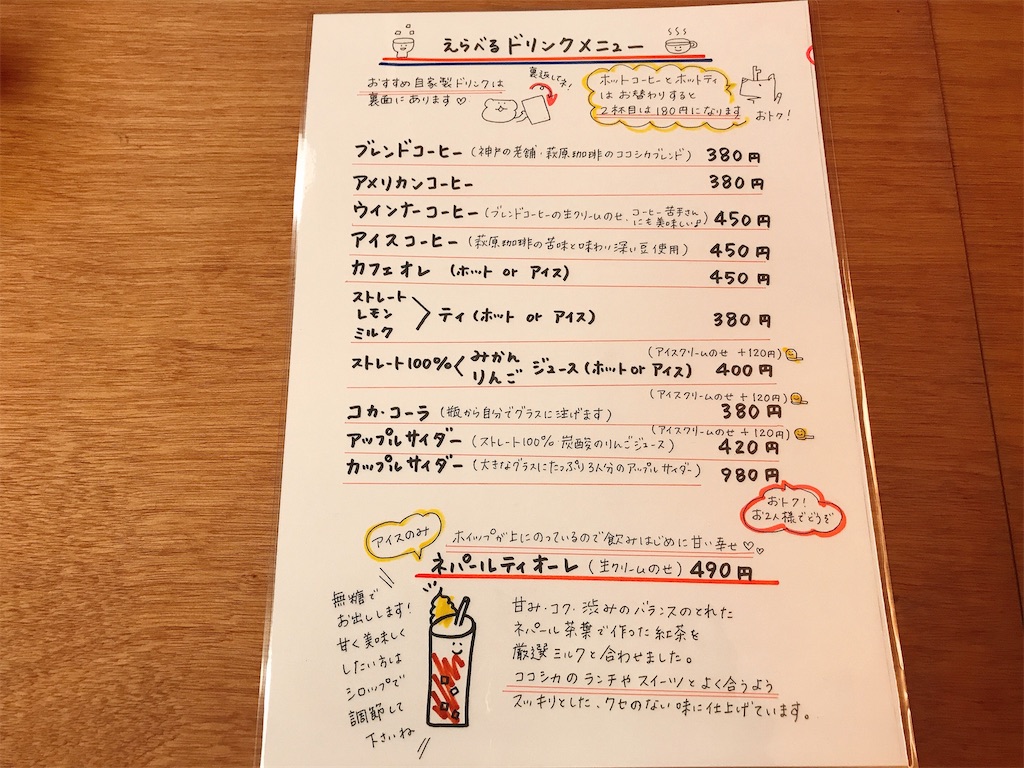 えらべるドリンクメニュー
おすすめ自家製ドリンクは
裏面にあります♡
裏返してネ!
ホットコーヒーとホットティ
はお替わりすると
2杯目は180円になります
おトク!
ブレンドコーヒー(神戸の老舗・萩原珈琲のココシカブレンド) 380円
アメリカンコーヒー 380円
ウインナーコーヒー(ブレンドコーヒーの生クリームのせ、コーヒー苦手さんにも美味しい♪) 450円
アイスコーヒー(萩原珈琲の苦味と味わい深い豆使用) 450円
カフェオレ (ホット or アイス) 450円
ストレート
レモン
ミルク
ティ(ホット or アイス) 380円
(アイスクリームのせ +120円)
ストレート100%
みかん
りんご
ジュース(ホット or アイス) 400円
(アイスクリームのせ +120円)
コカ・コーラ(瓶から自分でグラスに注げます) 380円
(アイスクリームのせ +120円)
アップルサイダー(ストレート100%・炭酸のりんごジュース) 420円
カップルサイダー(大きなグラスにたっぷり3人分のアップルサイダー) 980円
おトク!
お2人様でどうぞ
アイスのみ
ホイップが上にのっているので飲みはじめに甘い幸せ♡♡
ネパールティオーレ(生クリームのせ) 490円
無糖で
お出しします!
甘く美味しく
したい方は
シロップで
調節して
下さいね
甘み・コク・渋みのバランスのとれた
ネパール茶葉で作った紅茶を
厳選ミルクと合わせました。
ココシカのランチやスイーツとよく合うよう
スッキリとした、クセのない味に仕上げています。